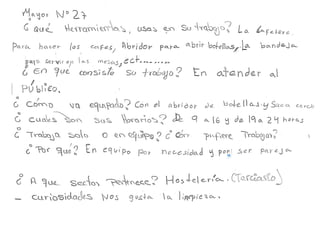 Mayor Nº 27
¿ Qué Herramientas, usas en su trabajo? La Cafetera
Para hacer los cafes, Abridor para abrir botellas, La bandeja
para servir en las mesas, ect.........
¿ En que consiste su trabajo? En atender al
Público.
¿ Cómo va equipado? Con el abridor de botellas y Saca corcho
¿ Cuales Son sus Horarios? De 9 a 16 y de 19 a 24 horas
¿ Trabaja solo o en equipo? ¿ Cómo prefiere Trabajar?
¿ Por qué? En equipo por necesidad y por ser pareja
¿ A que sector Pertenece? Hostelería. (Terciario)
- Curiosidades Nos gusta la limpieza.